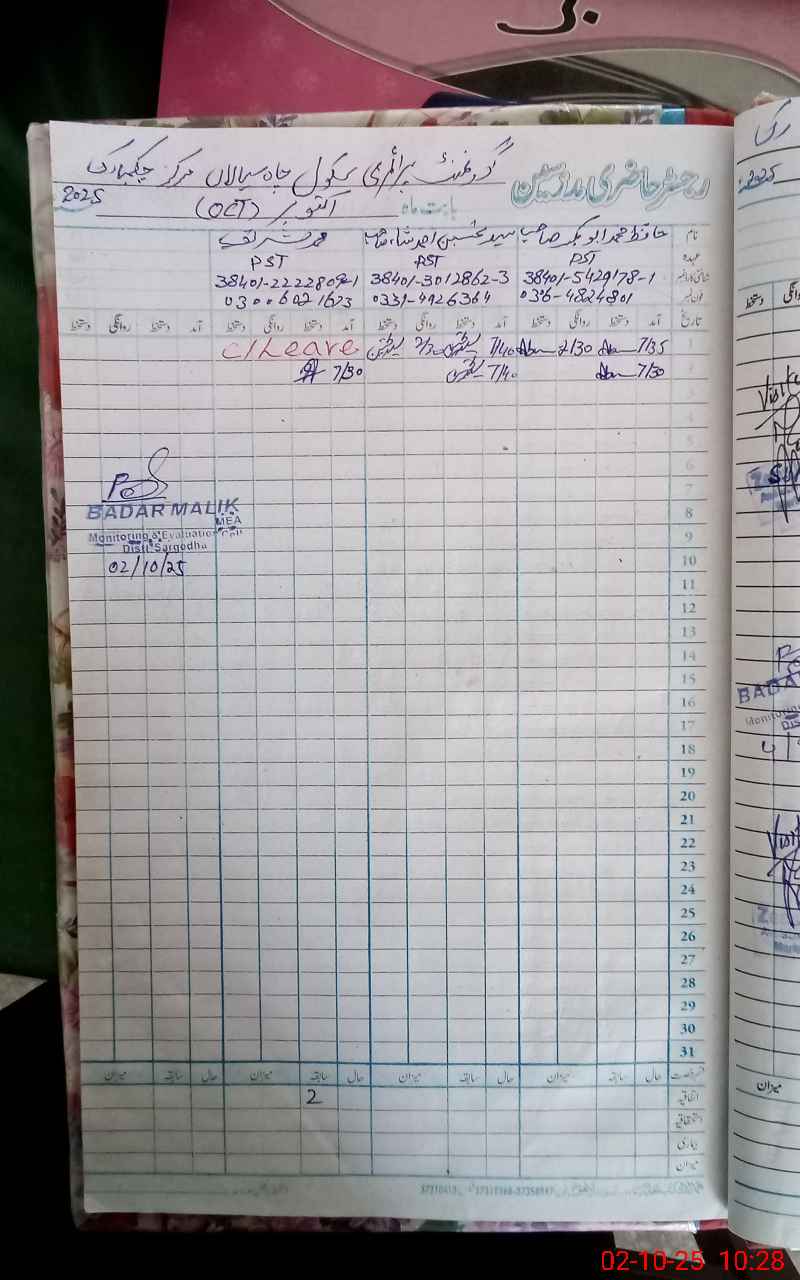 رجسٹر حاضری مدرسین
گورنمنٹ پرائمری سکول چاہ سیالاں مرکز
بابت ماہ اکتوبر (OCT) 2025
نام حافظ محمد ابوبکر صاحب سید تحسین احمد شاہ صاحب محمد شریف
عہدہ PST PST PST
38401-5429178-1 38401-3012862-3 38401-2222809-1
036-4824801 0331-4926364 03006021623
تاریخ آمد دستخط روانگی دستخط آمد دستخط روانگی دستخط آمد دستخط روانگی دستخط آمد دستخط روانگی دستخط
1 7/35 2/30 7/40 2/30 C/Leave
2 7/30 7/40 7/30
3
4
5
6
7
8
9
10
11
12
13
14
15
16
17
18
19
20
21
22
23
24
25
26
27
28
29
30
31
BADAR MALIK
MEA
Monitoring & Evaluation Cell
Distt. Sargodha
02/10/25
حال سابقہ میزان حال سابقہ میزان حال سابقہ میزان حال سابقہ میزان
اتفاقیہ 2
استحقاقیہ
بیماری
میزان
2025
روانگی
دستخط
Visit
BADA
Monitoring
Dis
4
Visit
Ze
میزان
02-10-25 10:28